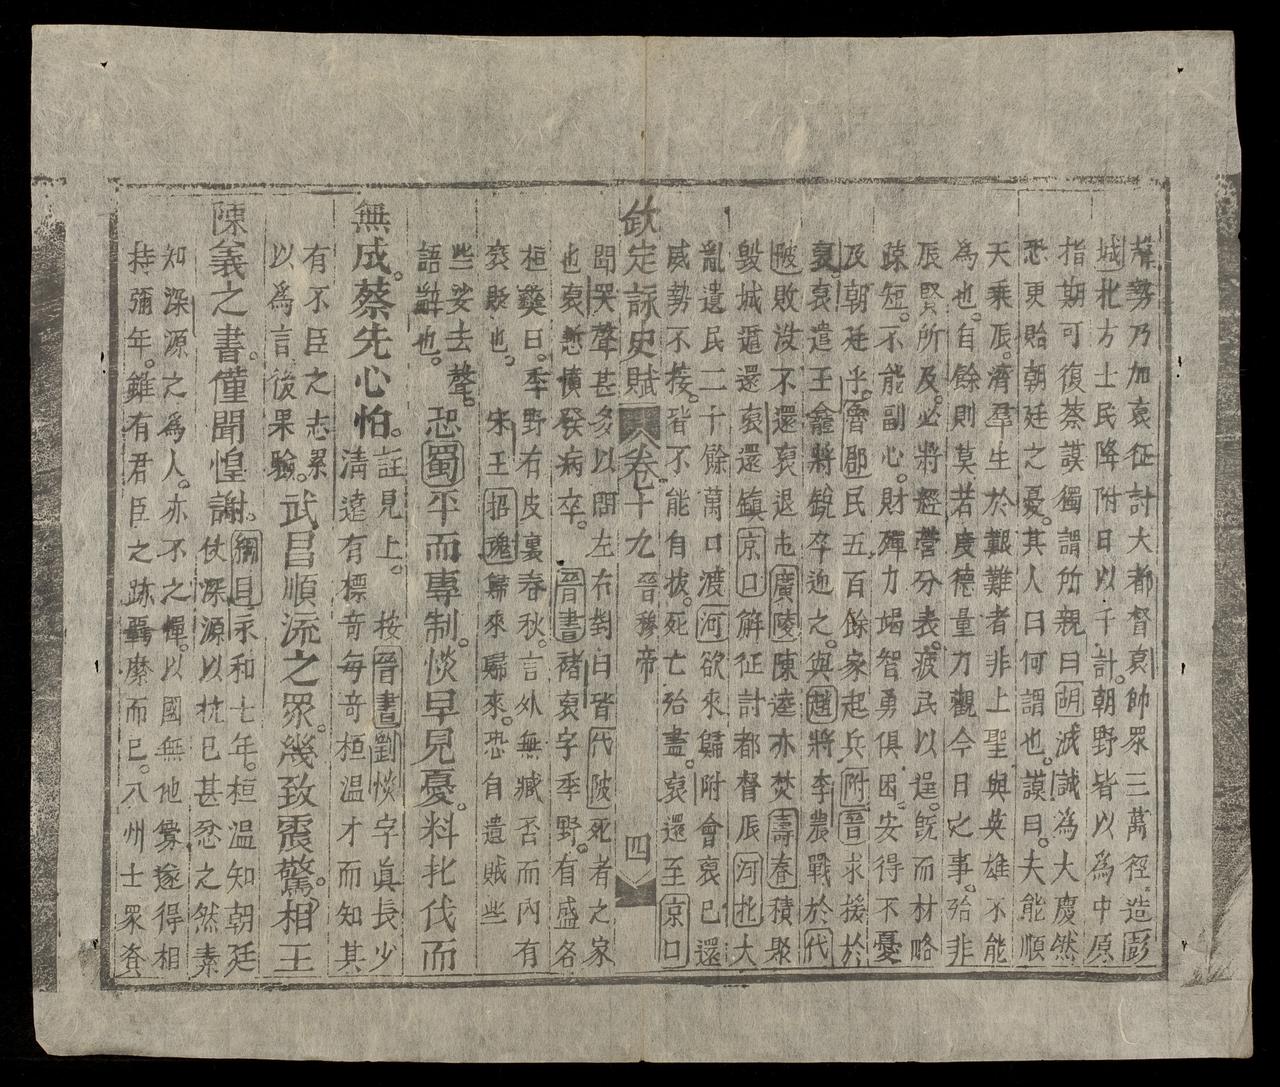 葬勢乃加裒征討大都督裒帥眾三萬徑造彭
城北方士民降附日以千計朝野皆以為中原
指期可復蔡謨獨謂所親曰胡滅誠為大慶然
恐更貽朝廷之憂其人曰何謂也謨曰夫能順
天乘辰濟羣生於艱難者非上聖與英雄不能
為也自餘則莫若度德量力觀今日之事殆非
辰賢所及必將經營分表疲民以逞旣而材略
疎短不能副心財殫力竭智勇俱困安得不憂
及朝廷乎魯郡民五百餘家起兵附晉求援於
裒裒遣王龕將銳卒迎之與趙將李農戰於代
陂敗沒不還裒退屯廣陵陳逵亦焚壽春積聚
毀城遁還裒還鎮京口解征討都督辰河北大
亂遺民二十餘萬口渡河欲來歸附會裒已還
威勢不接皆不能自拔死亡殆盡裒還至京口
欽定詠史賦 卷十九 晉穆帝 四
聞哭聲甚多以問左右對曰皆代陂死者之家
也裒慙憤發病卒 晉書褚裒字季野有盛各
桓彝曰季野有皮裏春秋言外無臧否而內有
褒貶也 宋玉招魂歸來歸來恐自遺賊些
些娑去聲
語辭也 恐蜀平而專制惔早見憂料北伐而
無成蔡先心怕 註見上 按晉書劉惔字眞長少
清遠有標奇每奇桓溫才而知其
有不臣之志累
以為言後果驗 武昌順流之眾幾致震驚相王
陳義之書僅聞惶謝 綱目永和七年桓溫知朝廷
仗深源以抗已甚忿之然素
知深源之為人亦不之憚以國無他釁遂得相
持彌年雖有君臣之跡羈縻而已八州士眾資